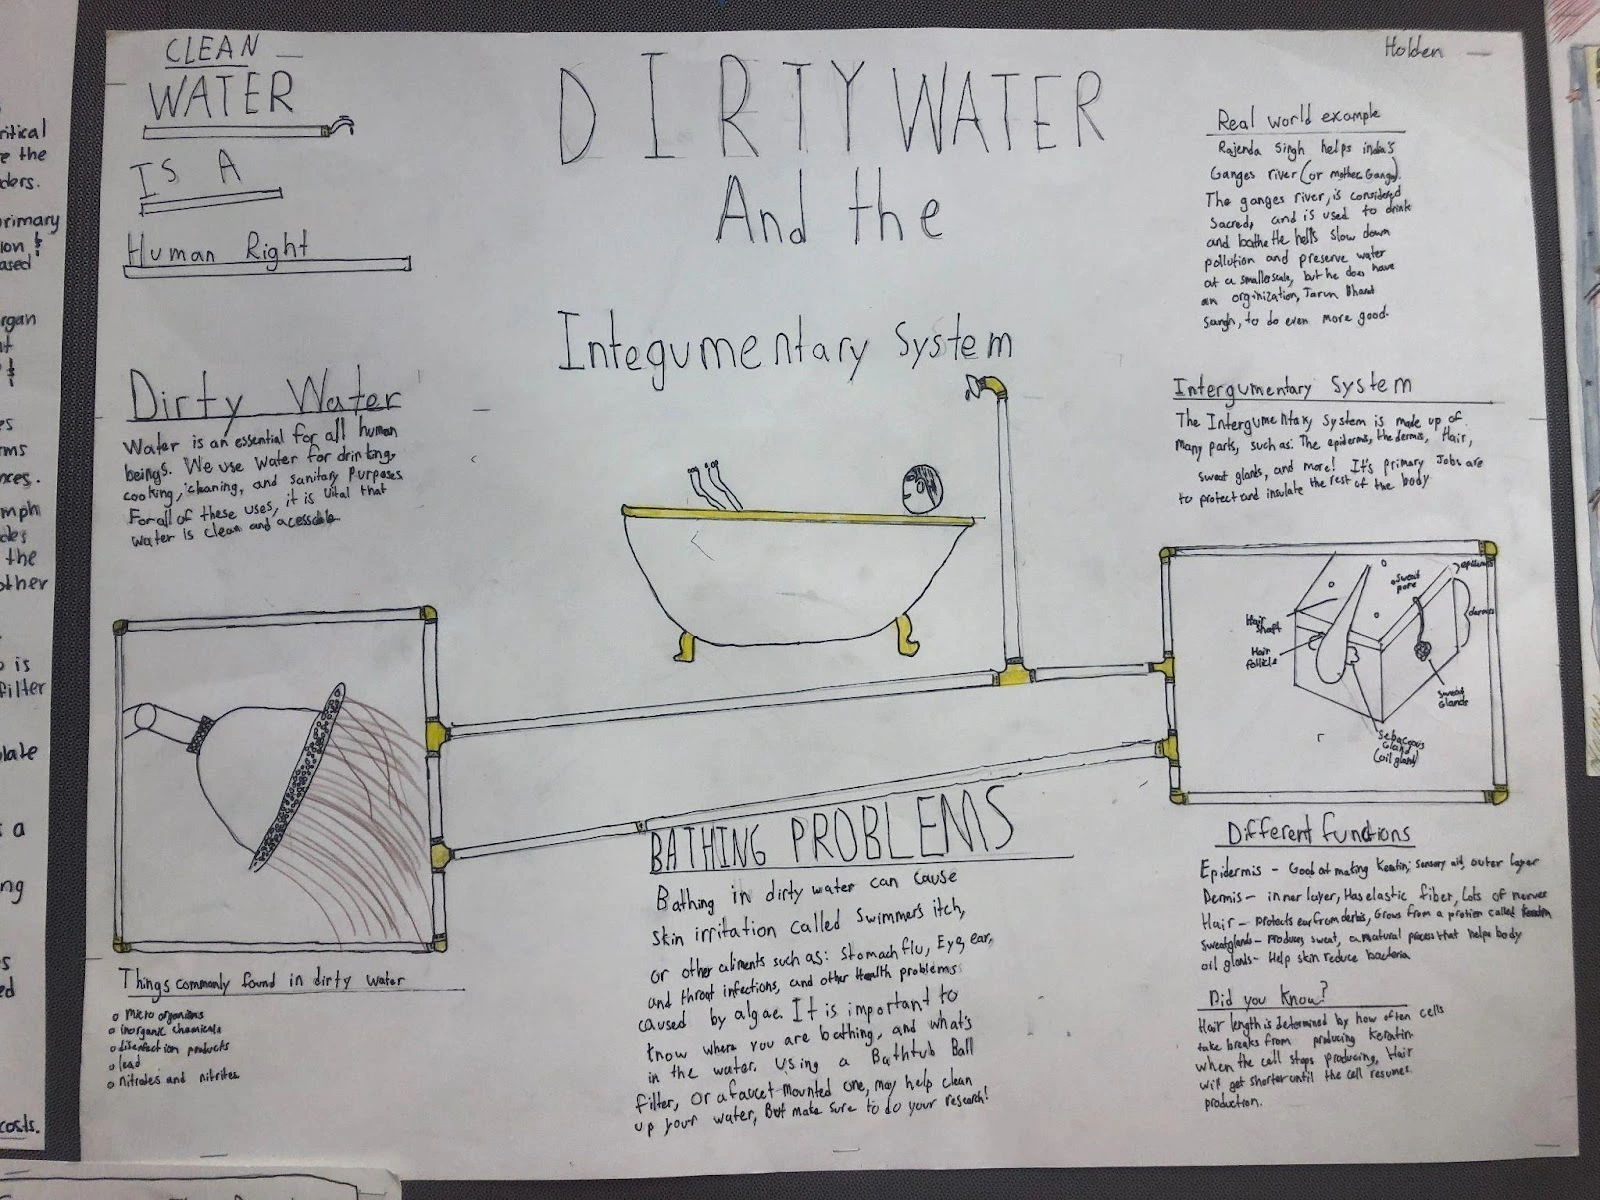 CLEAN
WATER
IS A
Human Right
DIRTY WATER
And the
Integumentary System
Holden
Real world example
Rajenda Singh helps india's
Ganges river (or mother Ganga).
The ganges river, is considered
Sacred, and is used to drink
and bathe He helps slow down
pollution and preserve water
at a smaller scale, but he does have
an orginization, Tarun Bharat
Sangh, to do even more good.
Dirty Water
Water is an essential for all human
beings. We use water for drinking,
cooking, cleaning, and sanitary purposes
For all of these uses, it is vital that
water is clean and acessable
Intergumentary System
The Intergumentary System is made up of
many parts, such as: The epidermis, the dermis, Hair,
sweat glands, and more! It's primary Jobs are
to protect and insulate the rest of the body
sweat
pore
epidermis
dermis
Hair
shaft
Hair
follicle
sweat
Glands
Sebaceous
Gland
(oil gland)
Things commonly found in dirty water
Micro organisms
inorganic chemicals
disenfection products
lead
nitrates and nitrites
BATHING PROBLEMS
Bathing in dirty water can cause
skin irritation called Swimmer's itch,
or other ailments such as: Stomach flu, Eye, ear,
and throat infections, and other Health problems
caused by algae. It is important to
know where you are bathing, and what's
in the water. Using a Bathtub Ball
filter, or a faucet-mounted one, may help clean
up your water, But make sure to do your research!
Different functions
Epidermis - Good at making Keratin, sensory aid, outer layer
Dermis - inner layer, Has elastic fiber, Lots of nerves
Hair - Protects ear from debris, Grows from a protien called Keratin
Sweat glands - Produces sweat, a natural process that helps body
oil glands - Help skin reduce bacteria
Did you Know?
Hair length is determined by how often cells
take breaks from producing Keratin
when the cell stops producing, Hair
will get shorter until the cell resumes
production.
ritical
e the
ders.
primary
ion &
ased
rgan
t
&
es
rms
nces.
mph
des
the
other
is
filter
late
s a
ng
s
ed
costs.